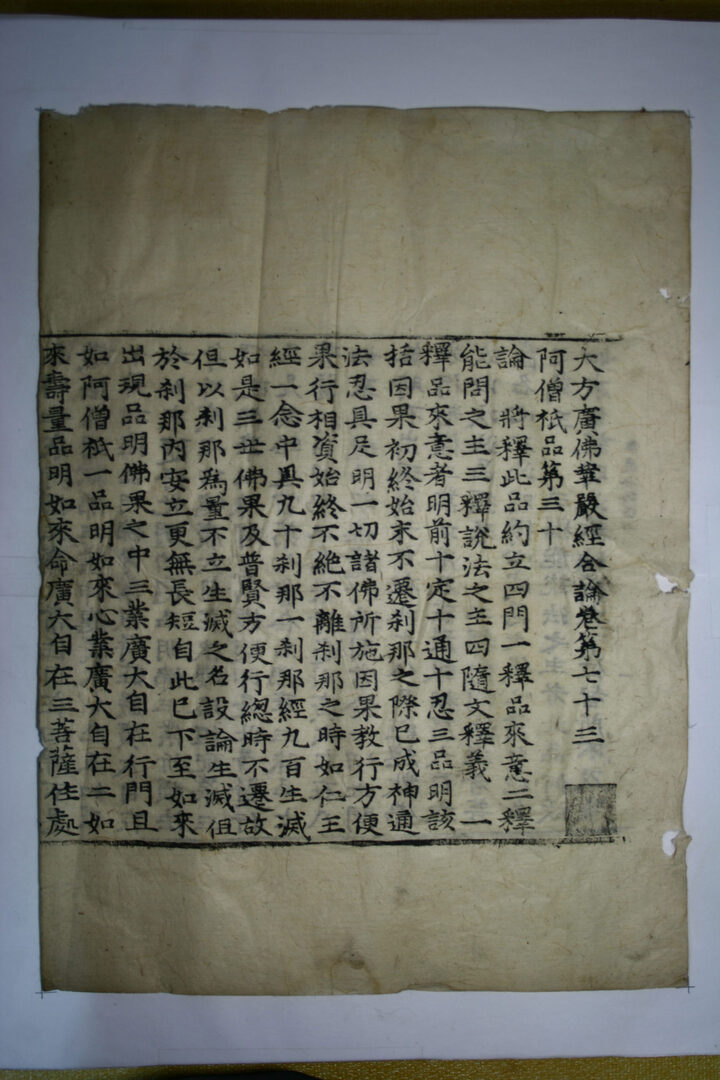 大方廣佛華嚴經合論卷第七十三
阿僧祇品第三十
論　將釋此品約立四門一釋品來意二釋
能問之主三釋說法之主四隨文釋義　一
釋品來意者明前十定十通十忍三品明該
括因果初終始末不遷刹那之際已成神通
法忍具足明一切諸佛所施因果教行方便
果行相資始終不絶不離刹那之時如仁王
經一念中具九十刹那一刹那經九百生滅
如是三世佛果及普賢方便行總時不遷故
但以刹那爲量不立生滅之名設論生滅但
於刹那內安立更無長短自此已下至如來
出現品明佛果之中三業廣大自在行門且
如阿僧祇一品明如來心業廣大自在二如
來壽量品明如來命廣大自在三菩薩住處